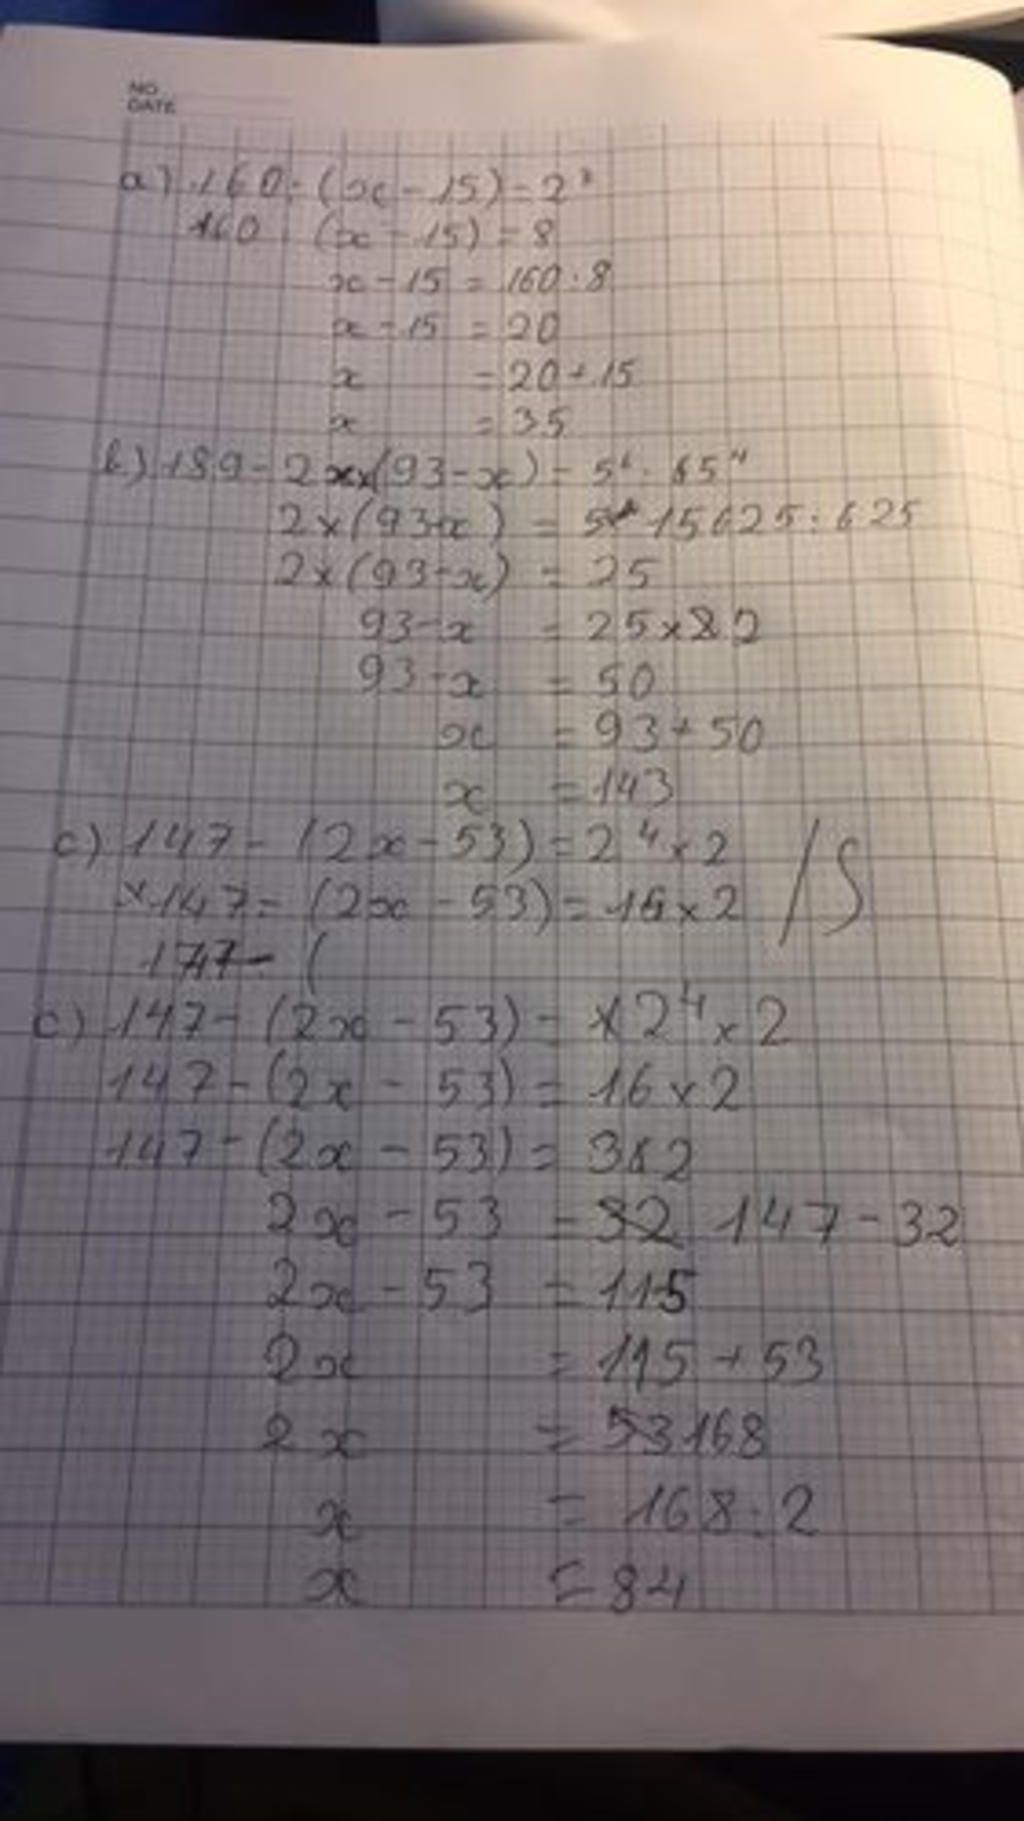 NO
DATE
a) 160 : (x - 15) = 2³
160 : (x - 15) = 8
x - 15 = 160 : 8
x - 15 = 20
x = 20 + 15
x = 35
b) 189 - 2 x (93 - x) = 5⁶ : 5⁴
2 x (93 - x) = 15625 : 625
2 x (93 - x) = 25
93 - x = 25 x 2
93 - x = 50
x = 93 + 50
x = 143
c) 147 - (2x - 53) = 2⁴ x 2
147 - (2x - 53) = 16 x 2
147 - (
/S
c) 147 - (2x - 53) = 2⁴ x 2
147 - (2x - 53) = 16 x 2
147 - (2x - 53) = 32
2x - 53 = 32 147 - 32
2x - 53 = 115
2x = 115 + 53
2x = 53 168
x = 168 : 2
x = 84